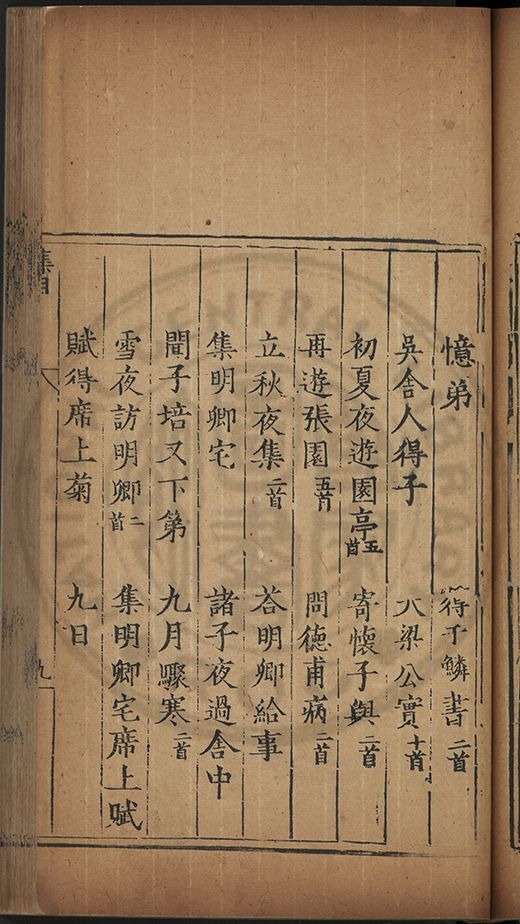 憶弟 得于鱗書二首
吳舍人得子 梁公實十首
初夏夜遊園亭五首 寄懷子與二首
再遊張園五首 問德甫病二首
立秋夜集二首 荅明卿給事
集明卿宅 諸子夜過舍中
聞子培又下第 九月驟寒二首
雪夜訪明卿二首 集明卿宅席上賦
賦得席上菊 九日
集目
九